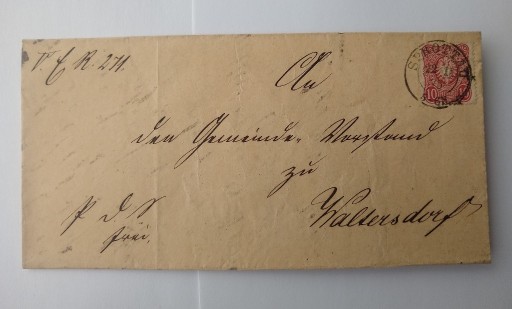 V. E. R. 211.
An
den Gemeinde-Vorstand
zu
Waltersdorf
P. d. S
frei.
10